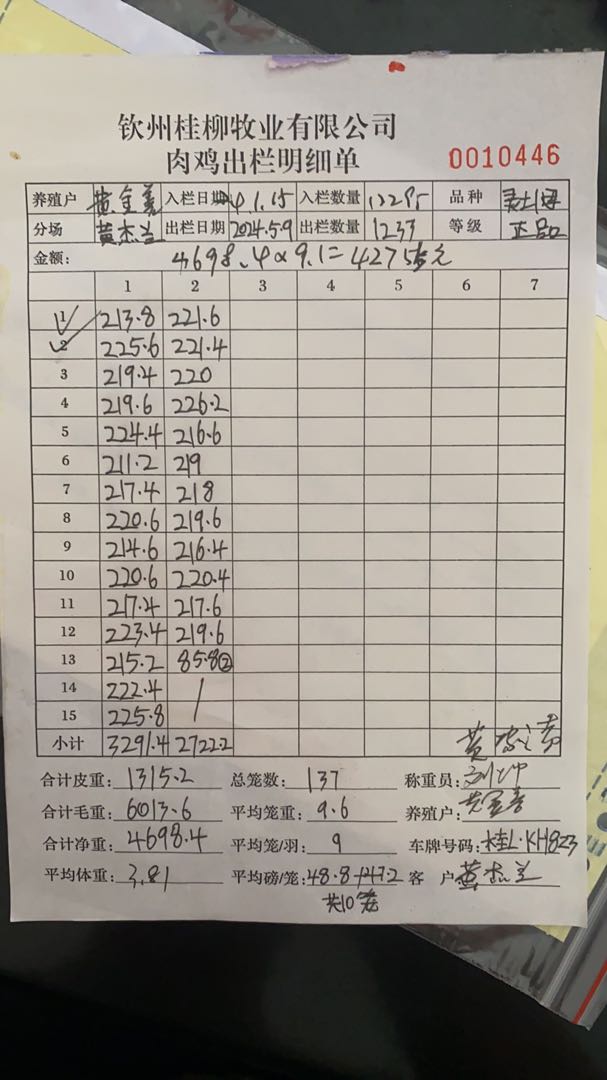 钦州桂柳牧业有限公司
肉鸡出栏明细单 0010446
养殖户 黄金善 入栏日期 24.1.15 入栏数量 品种
分场 黄杰兰 出栏日期 2024.5.9 出栏数量 1237 等级 正品
金额: 4698.4×9.1=42755元
1 2 3 4 5 6 7
1 213.8 221.6
2 225.6 221.4
3 219.4 220
4 219.6 226.2
5 224.4 216.6
6 211.2 219
7 217.4 218
8 220.6 219.6
9 214.6 216.4
10 220.6 220.4
11 217.4 217.6
12 223.4 219.6
13 215.2 85.8②
14 222.4
15 225.8
小计 3291.4 2722.2
合计皮重: 1315.2 总笼数: 137 称重员:
合计毛重: 6013.6 平均笼重: 9.6 养殖户:
合计净重: 4698.4 平均笼/羽: 9 车牌号码: 桂L·KH823
平均体重: 3.81 平均磅/笼: 48.8+47.2 客户 黄杰兰
共10笼